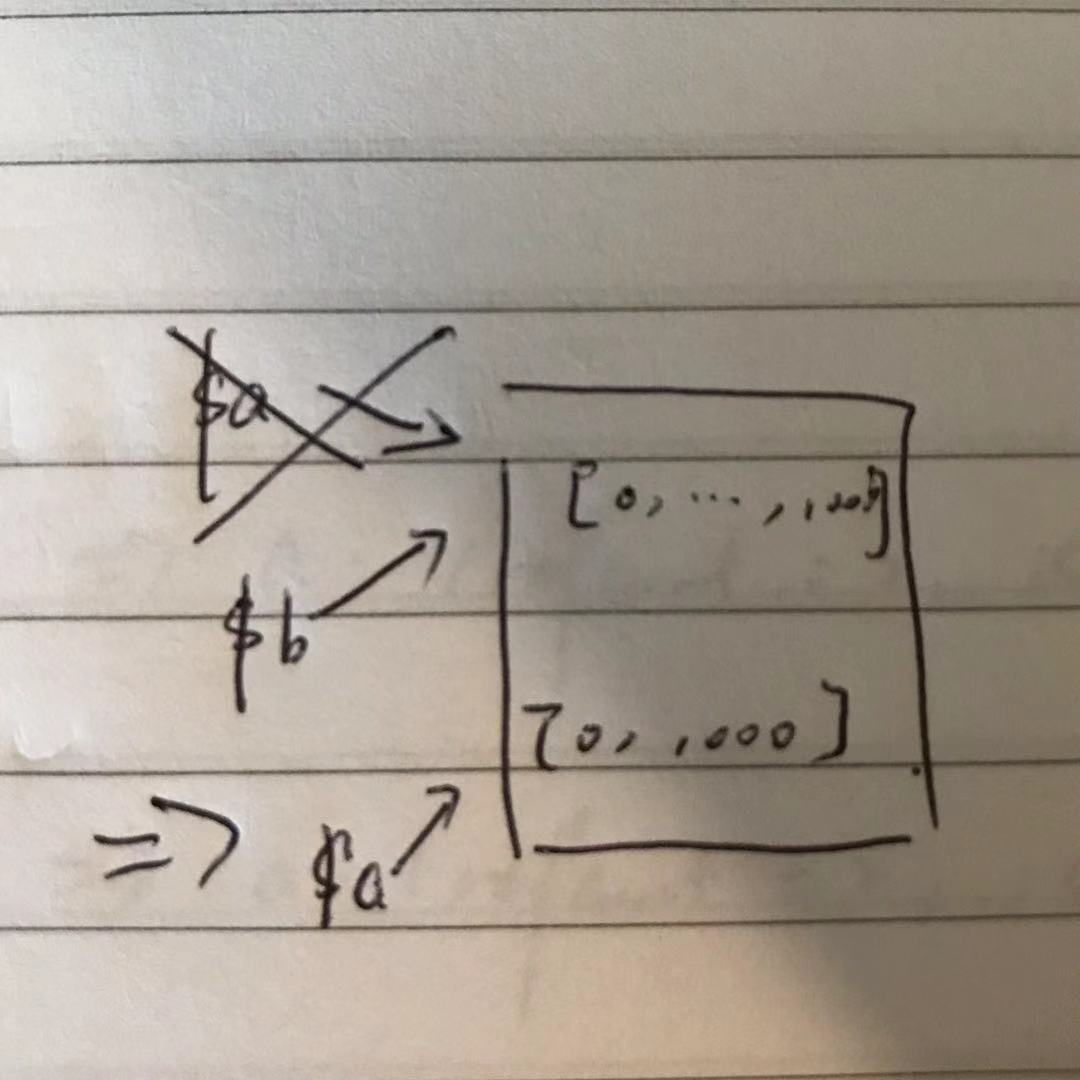 $a
[0, ... , 1000]
$b
[0, ,1000]
=> $a